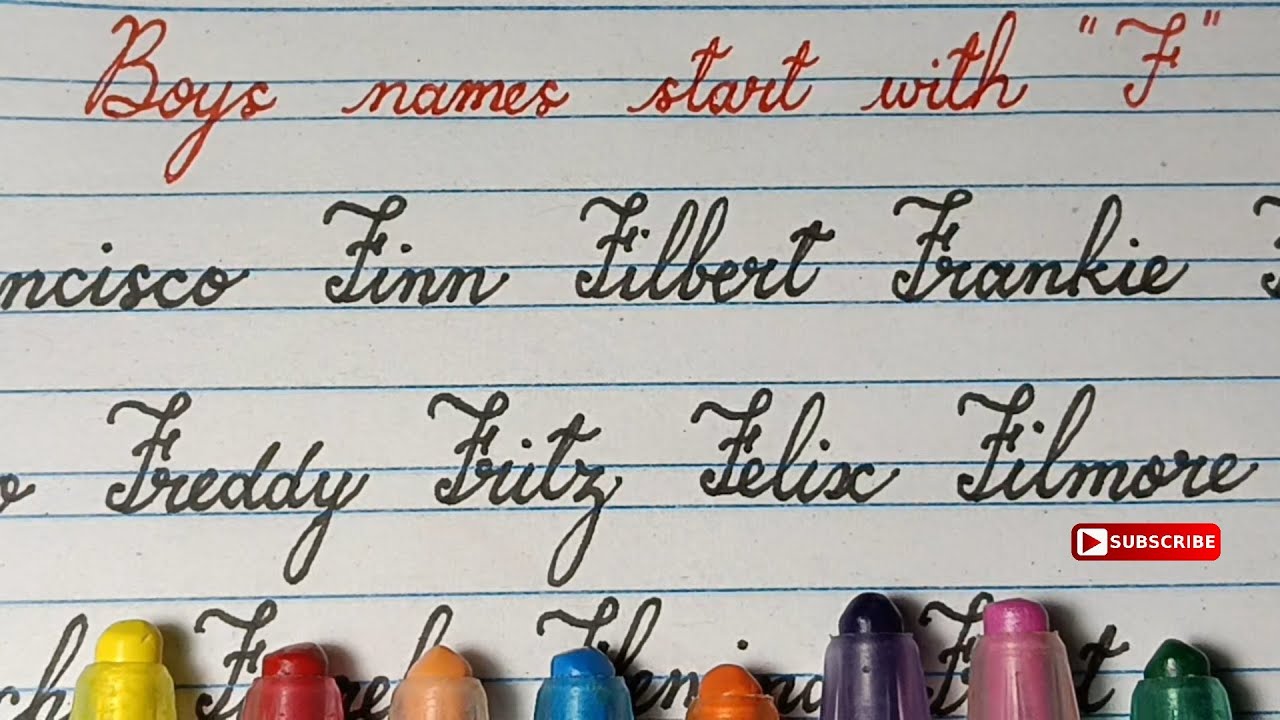 Boys names start with "F"
ncisco Finn Filbert Frankie
Freddy Fritz Felix Filmore
SUBSCRIBE